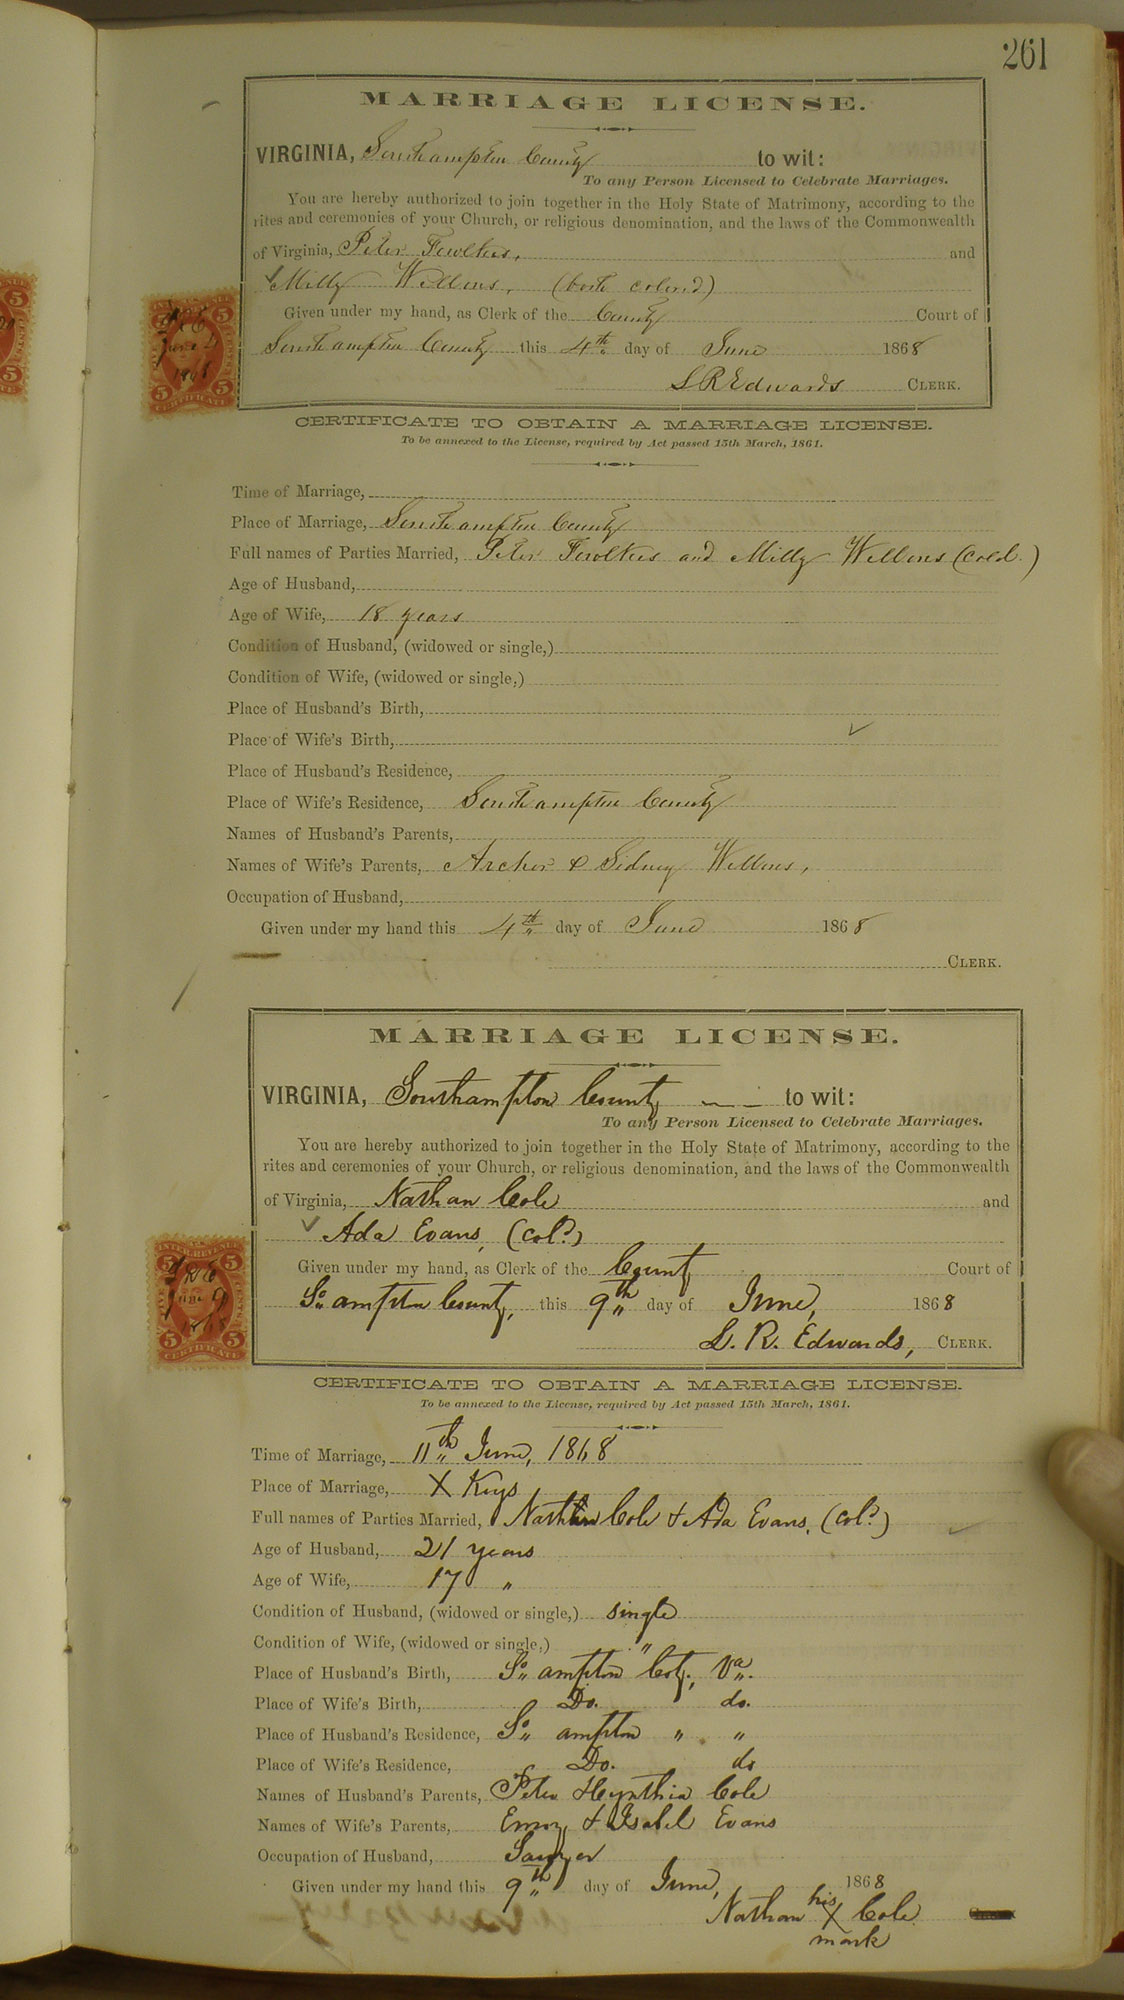 261
MARRIAGE LICENSE.
VIRGINIA, Southampton County to wit:
To any Person Licensed to Celebrate Marriages.
You are hereby authorized to join together in the Holy State of Matrimony, according to the
rites and ceremonies of your Church, or religious denomination, and the laws of the Commonwealth
of Virginia, Peter and
Milly (both colored)
Given under my hand, as Clerk of the County Court of
Southampton County this 4th day of June 1868
L R Edwards CLERK.
CERTIFICATE TO OBTAIN A MARRIAGE LICENSE.
To be annexed to the License, required by Act passed 15th March, 1861.
Time of Marriage,
Place of Marriage, Southampton County
Full names of Parties Married, Peter and Milly (cold.)
Age of Husband,
Age of Wife, 18 years
Condition of Husband, (widowed or single,)
Condition of Wife, (widowed or single,)
Place of Husband's Birth,
Place of Wife's Birth,
Place of Husband's Residence,
Place of Wife's Residence, Southampton County
Names of Husband's Parents,
Names of Wife's Parents, Archer & Sidney
Occupation of Husband,
Given under my hand this 4th day of June 1868
CLERK.
MARRIAGE LICENSE.
VIRGINIA, Southampton County to wit:
To any Person Licensed to Celebrate Marriages.
You are hereby authorized to join together in the Holy State of Matrimony, according to the
rites and ceremonies of your Church, or religious denomination, and the laws of the Commonwealth
of Virginia, Nathan Cole and
Ada Evans, (cold)
Given under my hand, as Clerk of the County Court of
So ampton County, this 9th day of June, 1868
L. R. Edwards, CLERK.
CERTIFICATE TO OBTAIN A MARRIAGE LICENSE.
To be annexed to the License, required by Act passed 15th March, 1861.
Time of Marriage, 11th June, 1868
Place of Marriage, X Keys
Full names of Parties Married, Nathan Cole & Ada Evans, (cold)
Age of Husband, 21 years
Age of Wife, 17 "
Condition of Husband, (widowed or single,) single
Condition of Wife, (widowed or single,) "
Place of Husband's Birth, So ampton Coty, Va.
Place of Wife's Birth, Do. do.
Place of Husband's Residence, So ampton " "
Place of Wife's Residence, Do. do
Names of Husband's Parents, Peter & Cynthia Cole
Names of Wife's Parents, & Isabel Evans
Occupation of Husband, Sawyer
Given under my hand this 9th day of June, 1868
Nathan his X mark Cole